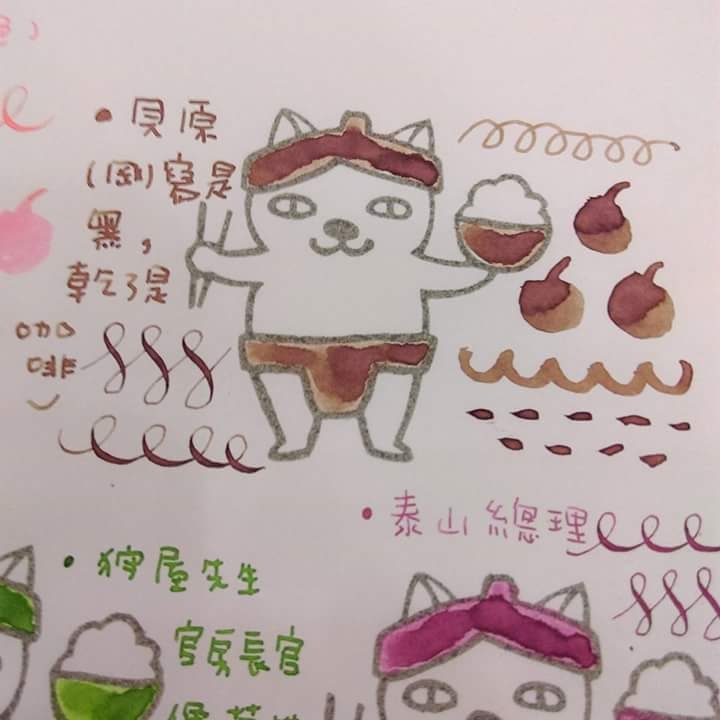 貝原
(剛)寫是
黑，
乾了是
咖
啡
泰山 總理
狩屋先生
官房長官